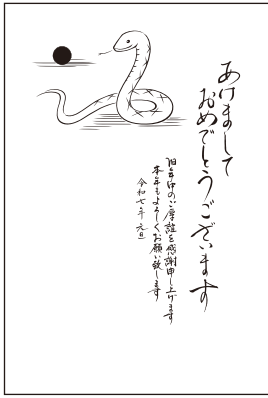 あけまして
おめでとうございます
旧年中のご厚誼を感謝申し上げます
本年もよろしくお願い致します
令和七年 元旦